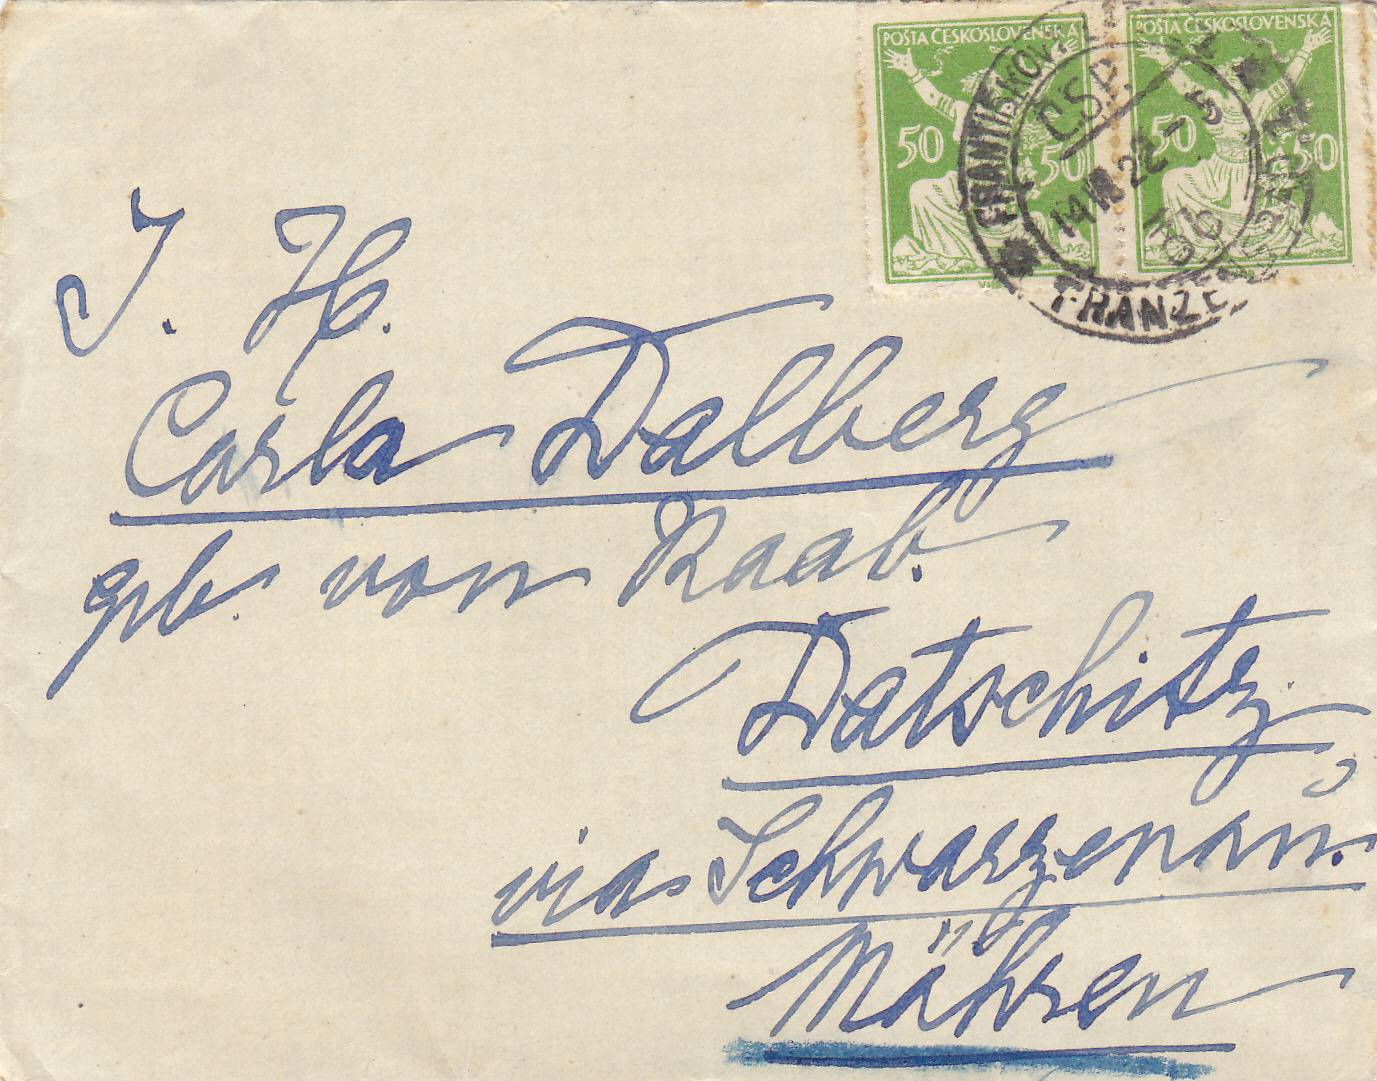 POŠTA ČESKOSLOVENSKÁ
50 50
POŠTA ČESKOSLOVENSKÁ
50 50
FRANTIŠKOVY
Č.S.P.
14 VII 22 - 5
FRANZE
I. H.
Carla Dalberg
geb. von Raab.
Datschitz
via Schwarzenau.
Mähren